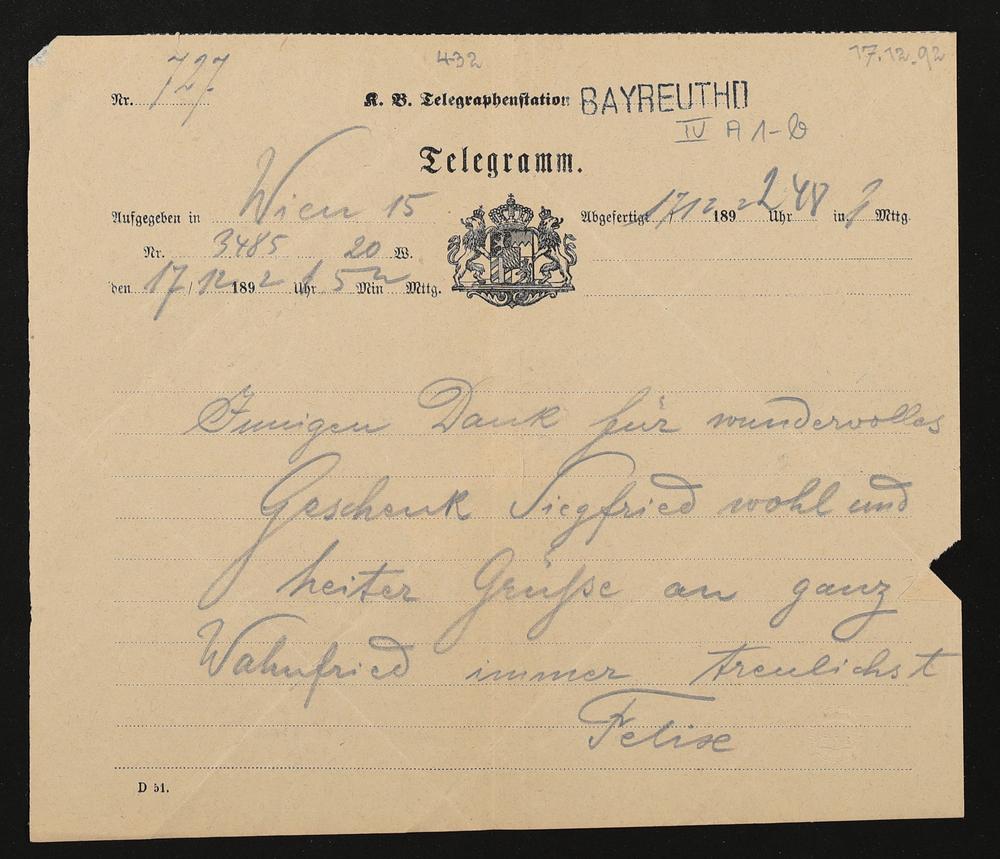 432
17.12.92
Nr. 727.
K. B. Telegraphenstation BAYREUTH
IV A 1-6
Telegramm.
Aufgegeben in Wien 15
Abgefertigt 17 12 1892 2 Uhr 48 in Mttg.
Nr. 3485 20 W.
den 17/12 1892 Uhr 5 Min Mttg.
Innigen Dank für wundervolles
Geschenk Siegfried wohl und
heiter Grüße an ganz
Wahnfried immer treulichst
Felix
D 51.